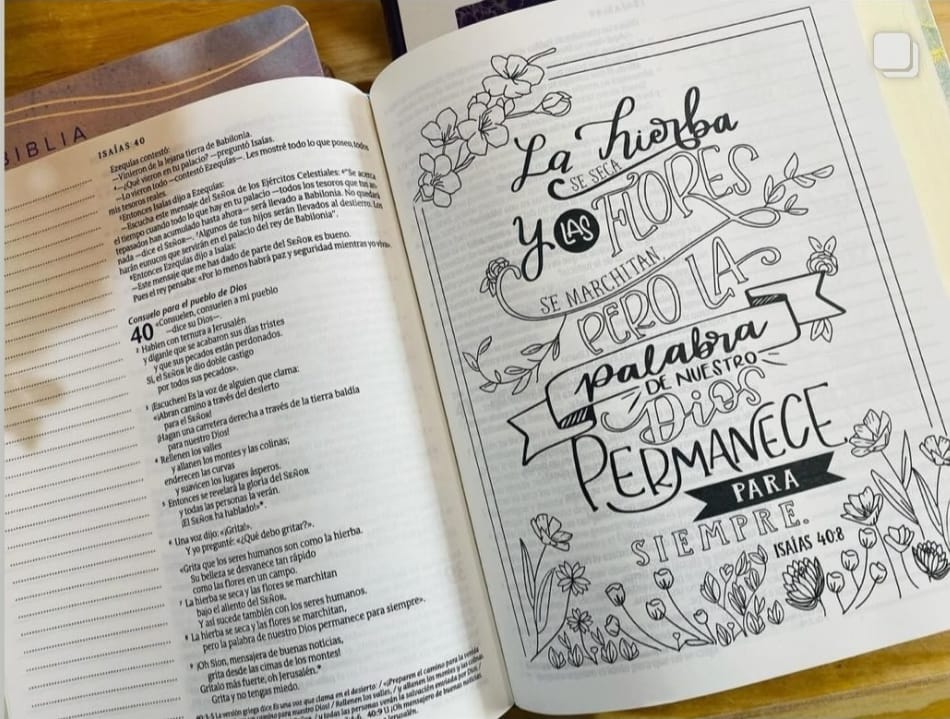 BIBLIA
ISAÍAS 40
Ezequías contestó:
—Vinieron de la lejana tierra de Babilonia.
—¿Qué vieron en tu palacio? —preguntó Isaías.
—Lo vieron todo —contestó Ezequías—. Les mostré todo lo que poseo, todos
mis tesoros reales.
Entonces Isaías dijo a Ezequías:
—Escucha este mensaje del SEÑOR de los Ejércitos Celestiales: "Se acerca
el tiempo cuando todo lo que hay en tu palacio —todos los tesoros que tus an-
tepasados han acumulado hasta ahora— será llevado a Babilonia. No quedará
nada —dice el SEÑOR—. Algunos de tus hijos serán llevados al destierro. Los
harán eunucos que servirán en el palacio del rey de Babilonia".
Entonces Ezequías dijo a Isaías:
—Este mensaje que me has dado de parte del SEÑOR es bueno.
Pues el rey pensaba: «Por lo menos habrá paz y seguridad mientras yo viva».
Consuelo para el pueblo de Dios
40 «Consuelen, consuelen a mi pueblo
—dice su Dios—.
2 Hablen con ternura a Jerusalén
y díganle que se acabaron sus días tristes
y que sus pecados están perdonados.
Sí, el SEÑOR le dio doble castigo
por todos sus pecados».
3 ¡Escuchen! Es la voz de alguien que clama:
«¡Abran camino a través del desierto
para el SEÑOR!
¡Hagan una carretera derecha a través de la tierra baldía
para nuestro Dios!
4 Rellenen los valles
y allanen los montes y las colinas;
enderecen las curvas
y suavicen los lugares ásperos.
5 Entonces se revelará la gloria del SEÑOR
y todas las personas la verán.
¡El SEÑOR ha hablado!»*.
6 Una voz dijo: «¡Grita!».
Y yo pregunté: «¿Qué debo gritar?».
«Grita que los seres humanos son como la hierba.
Su belleza se desvanece tan rápido
como las flores en un campo.
7 La hierba se seca y las flores se marchitan
bajo el aliento del SEÑOR.
Y así sucede también con los seres humanos.
8 La hierba se seca y las flores se marchitan,
pero la palabra de nuestro Dios permanece para siempre».
9 ¡Oh Sion, mensajera de buenas noticias,
grita desde las cimas de los montes!
Grítalo más fuerte, oh Jerusalén.*
Grita y no tengas miedo.
40:3-5 La versión griega dice Es una voz que clama en el desierto: / «¡Preparen el camino para la venida
camino para nuestro Dios! / Rellenen los valles, / y allanen los montes y las colinas
/ y todas las personas verán la salvación enviada por Dios
40:9 U ¡Oh mensajero de buenas noticias
Jerusalén.
La hierba
SE SECA
Y LAS FLORES
SE MARCHITAN,
PERO LA
palabra
DE NUESTRO
Dios
PERMANECE
PARA
SIEMPRE.
ISAÍAS 40:8